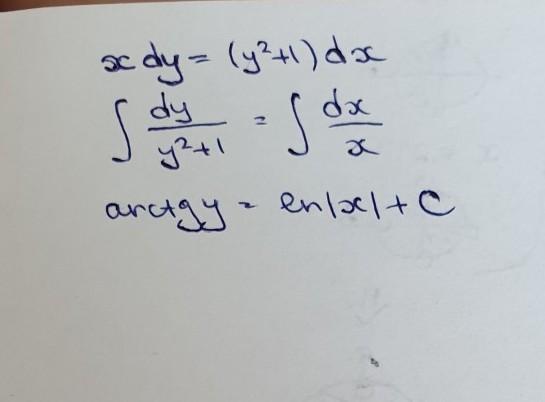 x dy = (y²+1) dx
∫ dy/(y²+1) = ∫ dx/x
arctgy = ln|x| + C